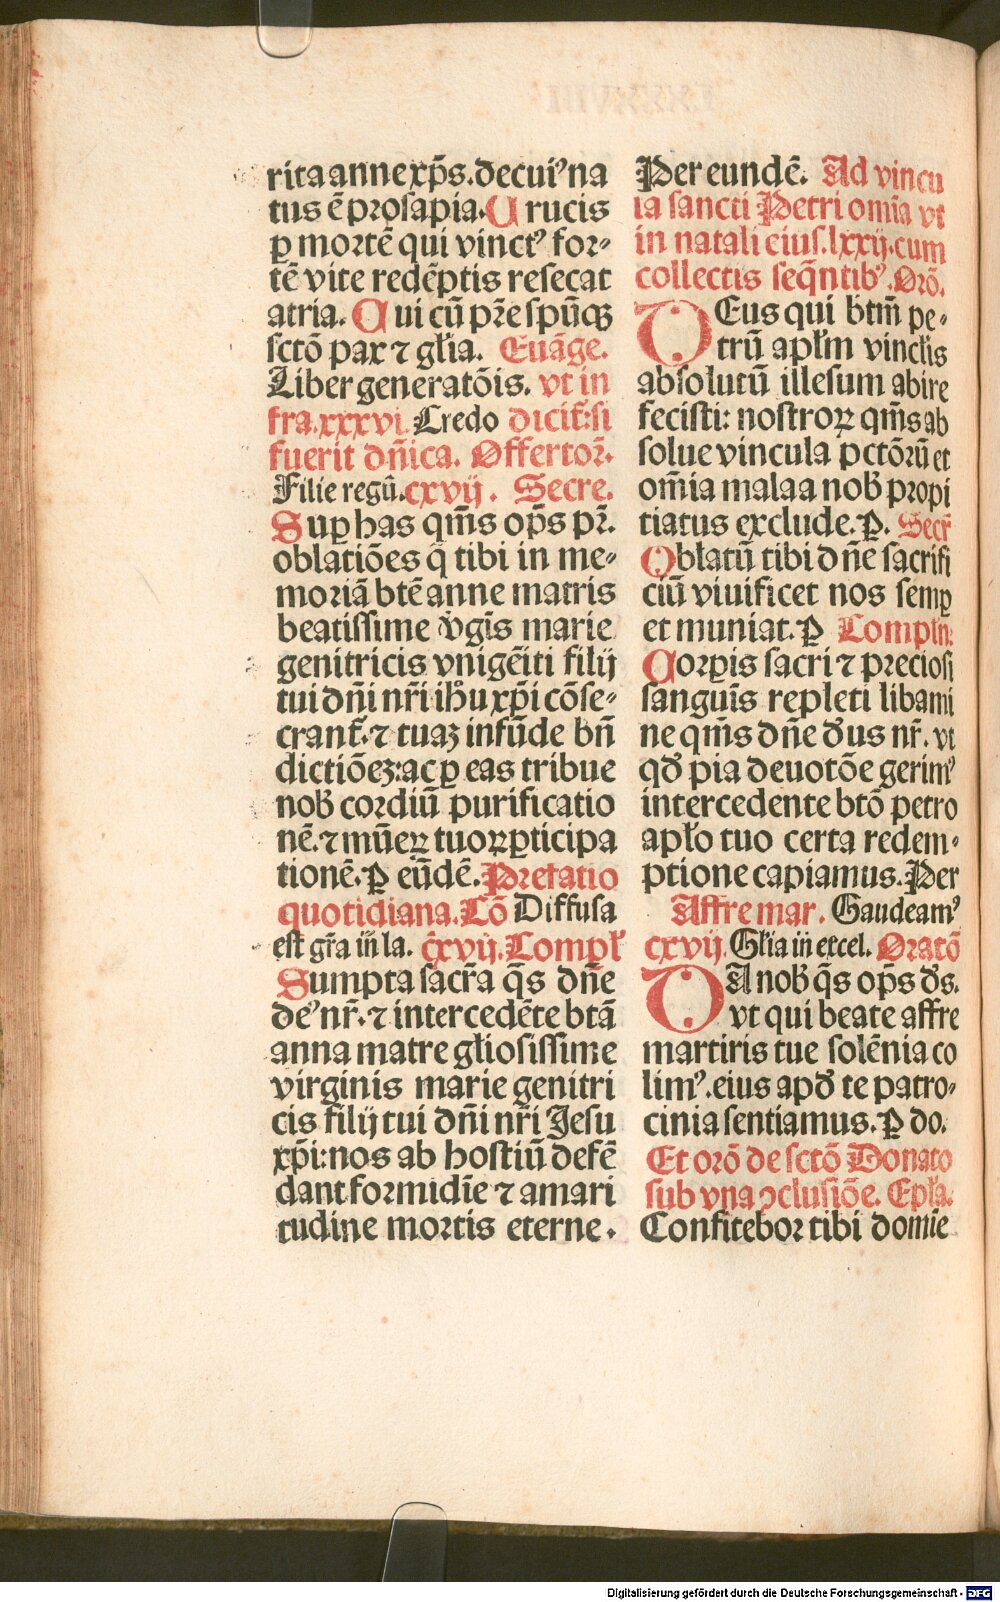 rita anne xp̄s. de cuiꝰ na
tus ē prosapia. Crucis
ꝑ mortē qui vinctꝰ for⸗
tē vite redēptis resecat
atria. Cui cū pr̄e spūqꝫ
sctō pax ⁊ gl̄ia. Euāge.
Liber generatōis. vt in
fra. xxxvi. Credo dicit̄: si
fuerit dn̄ica. Offertor̄.
Filie regū. cxvij. Secre.
Suꝑ has qm̄s op̄s pr̄.
oblatiōes q̄ tibi in me⸗
moriā btē anne matris
beatissime v̄gīs marie
genitricis vnigēiti filij
tui dn̄i nr̄i ih̄u xp̄i cōse⸗
crant̄. ⁊ tuaꝫ infūde bn̄
dictiōeꝫ: ac ꝑ eas tribue
nob̄ cordiū purificatio
nē. ⁊ mūeꝝ tuoꝝ ꝑticipa
tionē. P̱ eūdē. Prefatio
quotidiana. Cō Diffusa
est gr̄a in̄ la. cxvij. Compl̄
Sumpta sacr̄a q̄s dn̄e
deꝰ nr̄. ⁊ intercedēte btā
anna matre gl̄iosissime
virginis marie genitri
cis filij tui dn̄i nr̄i Jesu
xp̄i: nos ab hostiū defē
dant formidīe ⁊ amari
tudine mortis eterne.
Per eundē. Ad vincu
la sancti Petri om̄ia vt
in natali eius. lxxij. cum
collectis seq̄ntibꝰ. Orō.
DEus qui btm̄ pe⸗
trū apl̄m vinclis
absolutū illesum abire
fecisti: nostroꝝ qm̄s ab
solue vincula pctōrū et
om̄ia mala a nob̄ propi
tiatus exclude. P̱. Secr̄
Oblatū tibi dn̄e sacrifi
ciū viuificet nos semꝑ
et muniat. P̱ Compln̄:
Corꝑis sacri ⁊ preciosi
sanguīs repleti libami
ne qm̄s dn̄e d̄us nr̄. vt
qd̄ pia deuotōe gerimꝰ
intercedente btō petro
apl̄o tuo certa redem⸗
ptione capiamus. Per
Affre mar. Gaudeamꝰ
cxvij. Gl̄ia in excel. Oratō
DA nob̄ q̄s op̄s d̄s.
vt qui beate affre
martiris tue solēnia co
limꝰ. eius apd̄ te patro⸗
cinia sentiamus. P̱ do.
Et orō de sctō Donato
sub vna ꝯclusiōe. Epl̄a.
Confitebor tibi domīe
Digitalisierung gefördert durch die Deutsche Forschungsgemeinschaft - DFG